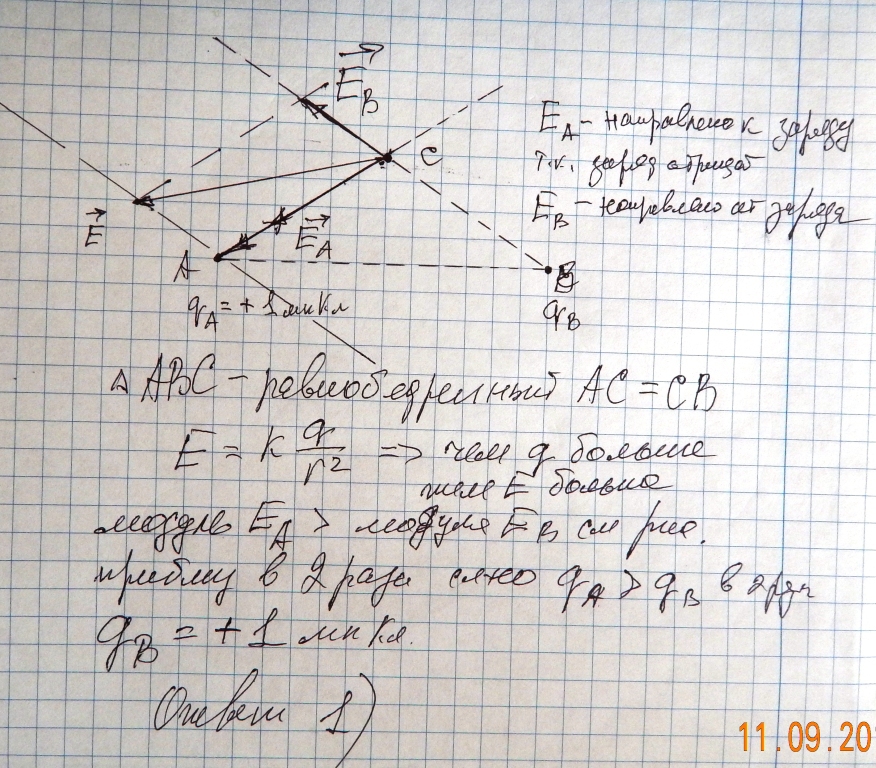 E_B
C
E
E_A
A
B
q_A = + 1 мкКл
q_B
E_A – направлено к заряду
т.к. заряд отрицат
E_B – направлено от заряда
Δ ABC – равнобедренный AC = CB
E = k q/r² => чем q больше
тем E больше
модуль E_A > модуля E_B см рис.
в 2 раза q_A > q_B в 2 раза
q_B = + 1 мкКл.
Ответ 1)
11.09.20